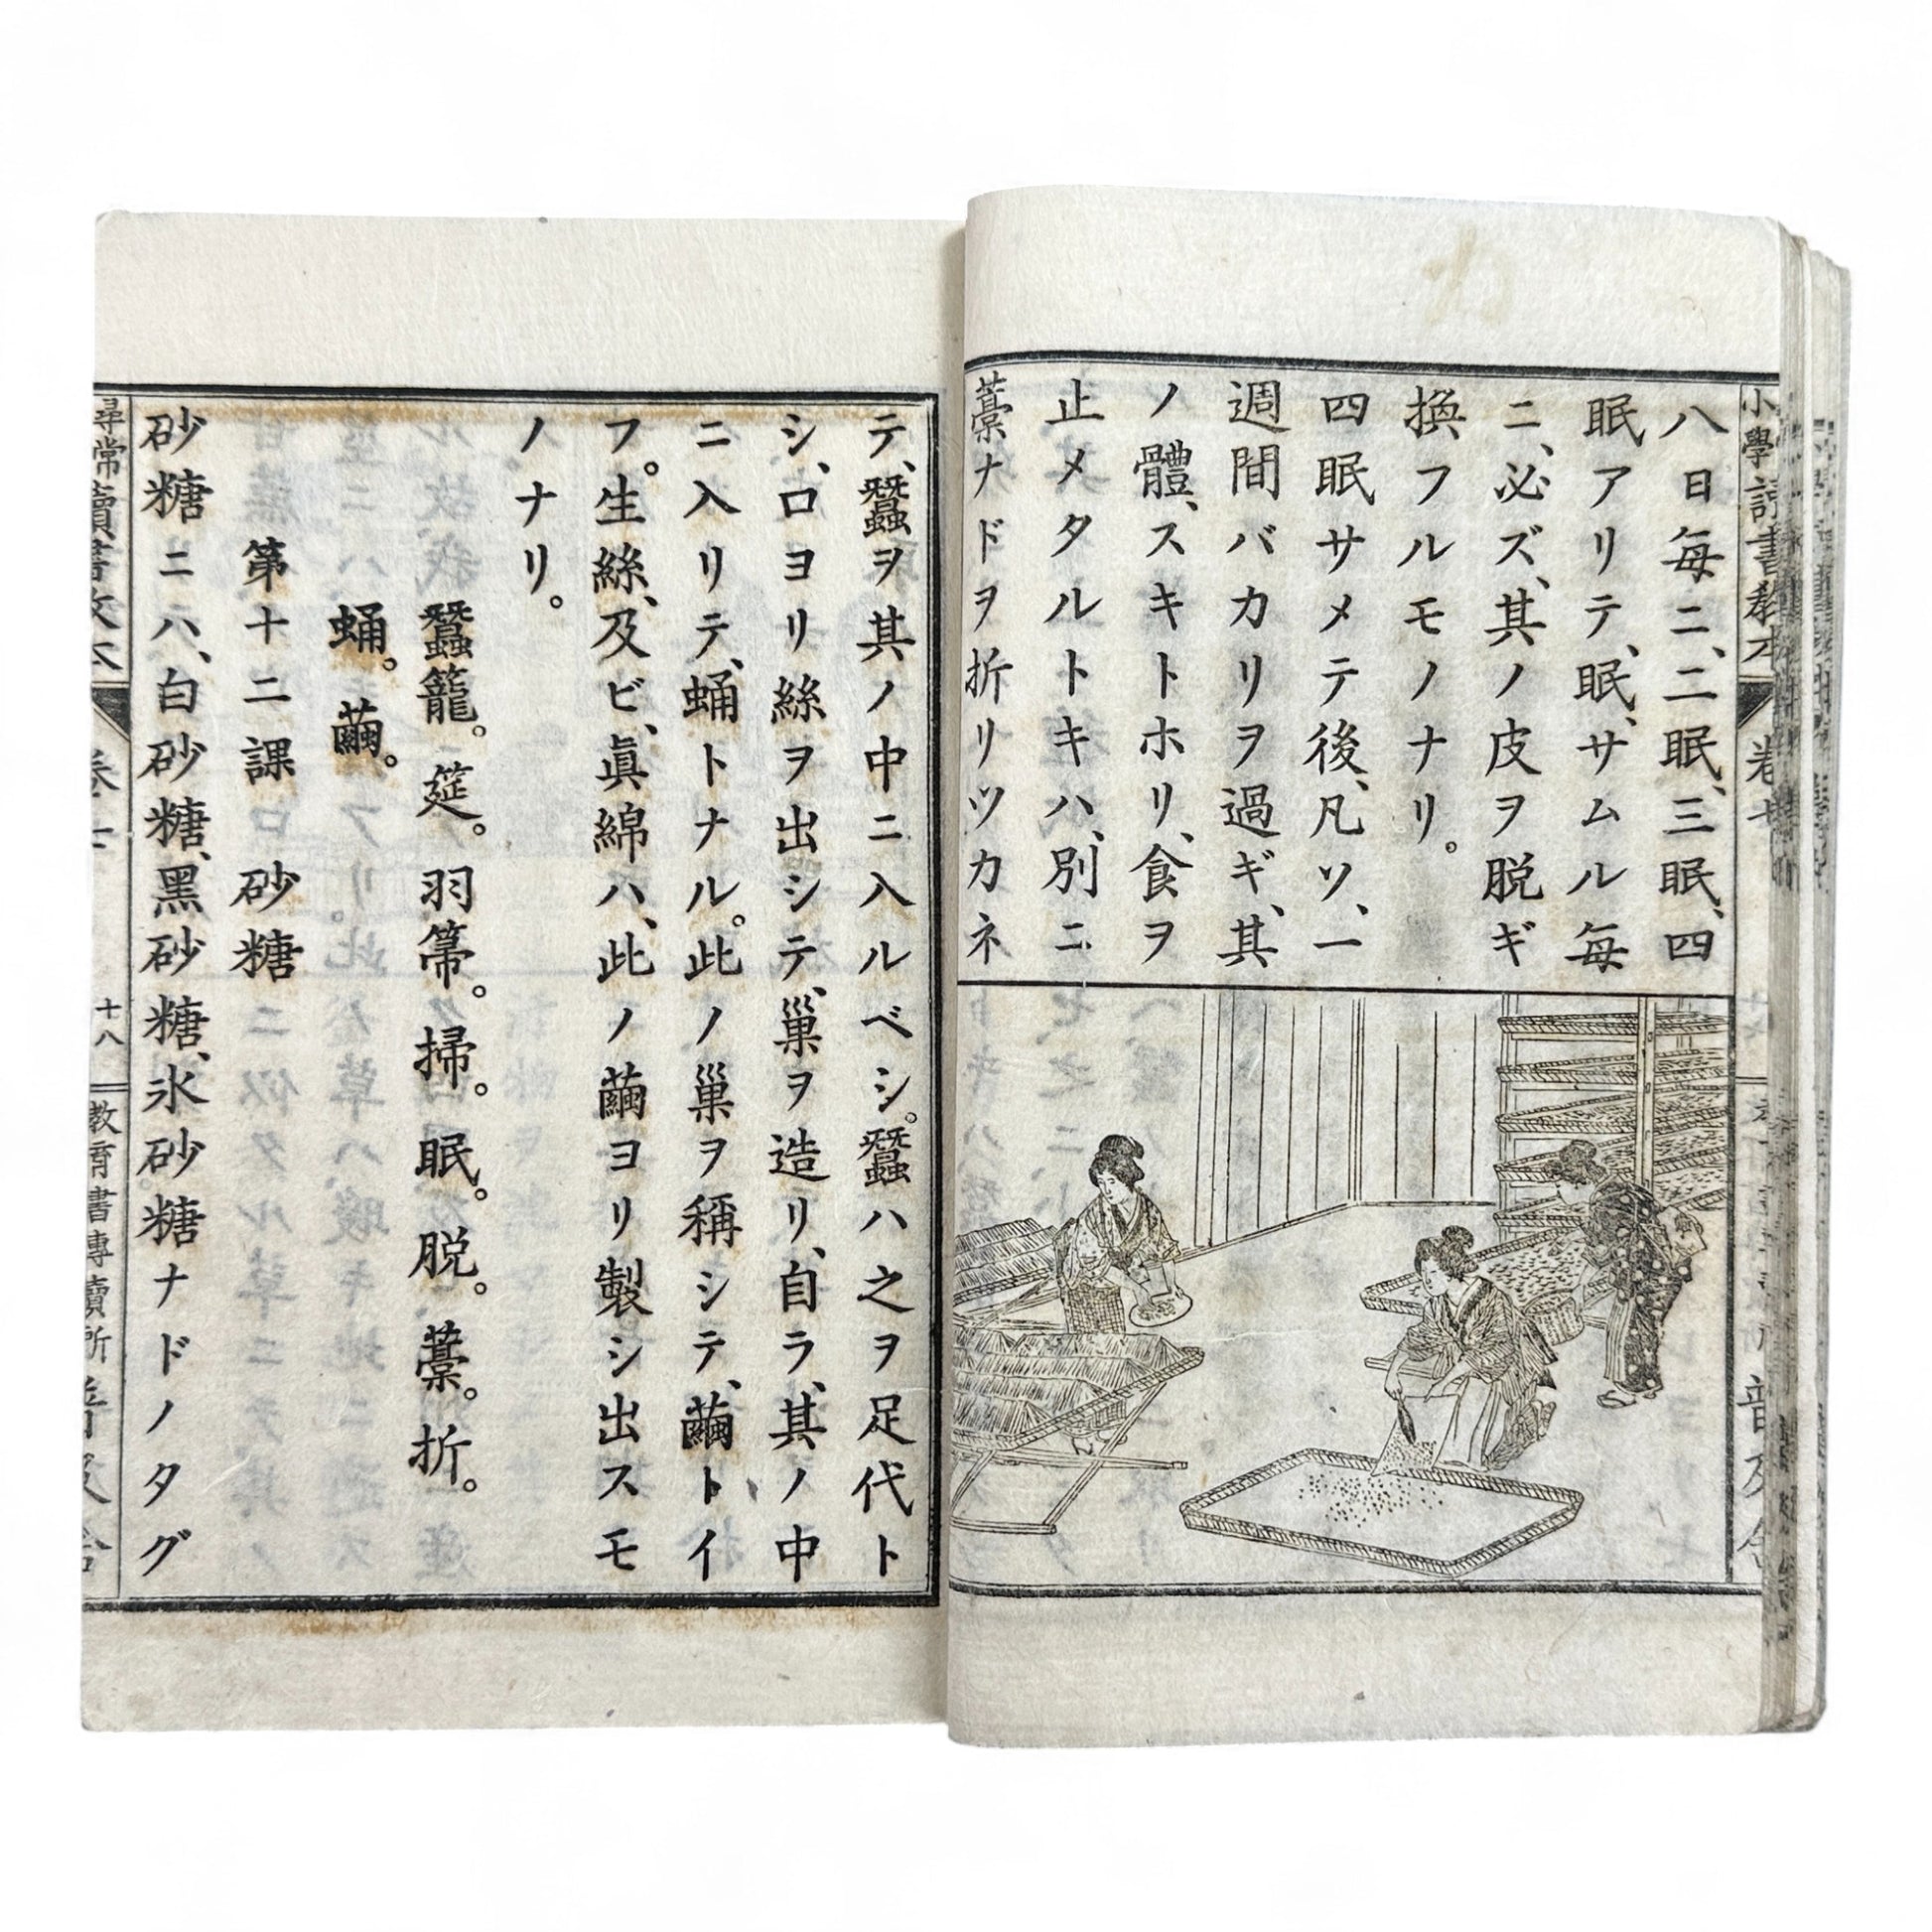 八日每ニ、二眠、三眠、四
眠アリテ、眠、サムル每
ニ、必ズ、其ノ皮ヲ脱ギ
換フルモノナリ。
四眠サメテ後、凡ソ、一
週間バカリヲ過ギ、其
ノ體、スキトホリ、食ヲ
止メタルトキハ、別ニ
藁ナドヲ折リツカネ
テ、蠶ヲ其ノ中ニ入ルベシ。蠶ハ之ヲ足代ト
シ、口ヨリ絲ヲ出シテ、巢ヲ造リ、自ラ、其ノ中
ニ入リテ、蛹トナル。此ノ巢ヲ稱シテ、繭トイ
フ。生絲、及ビ、眞綿ハ、此ノ繭ヨリ製シ出スモ
ノナリ。
蠶籠。筵。羽箒。掃。眠。脱。藁。折。
蛹。繭。
第十二課 砂糖
砂糖ニハ、白砂糖、黑砂糖、氷砂糖ナドノタグ
尋常讀書敎本
十八